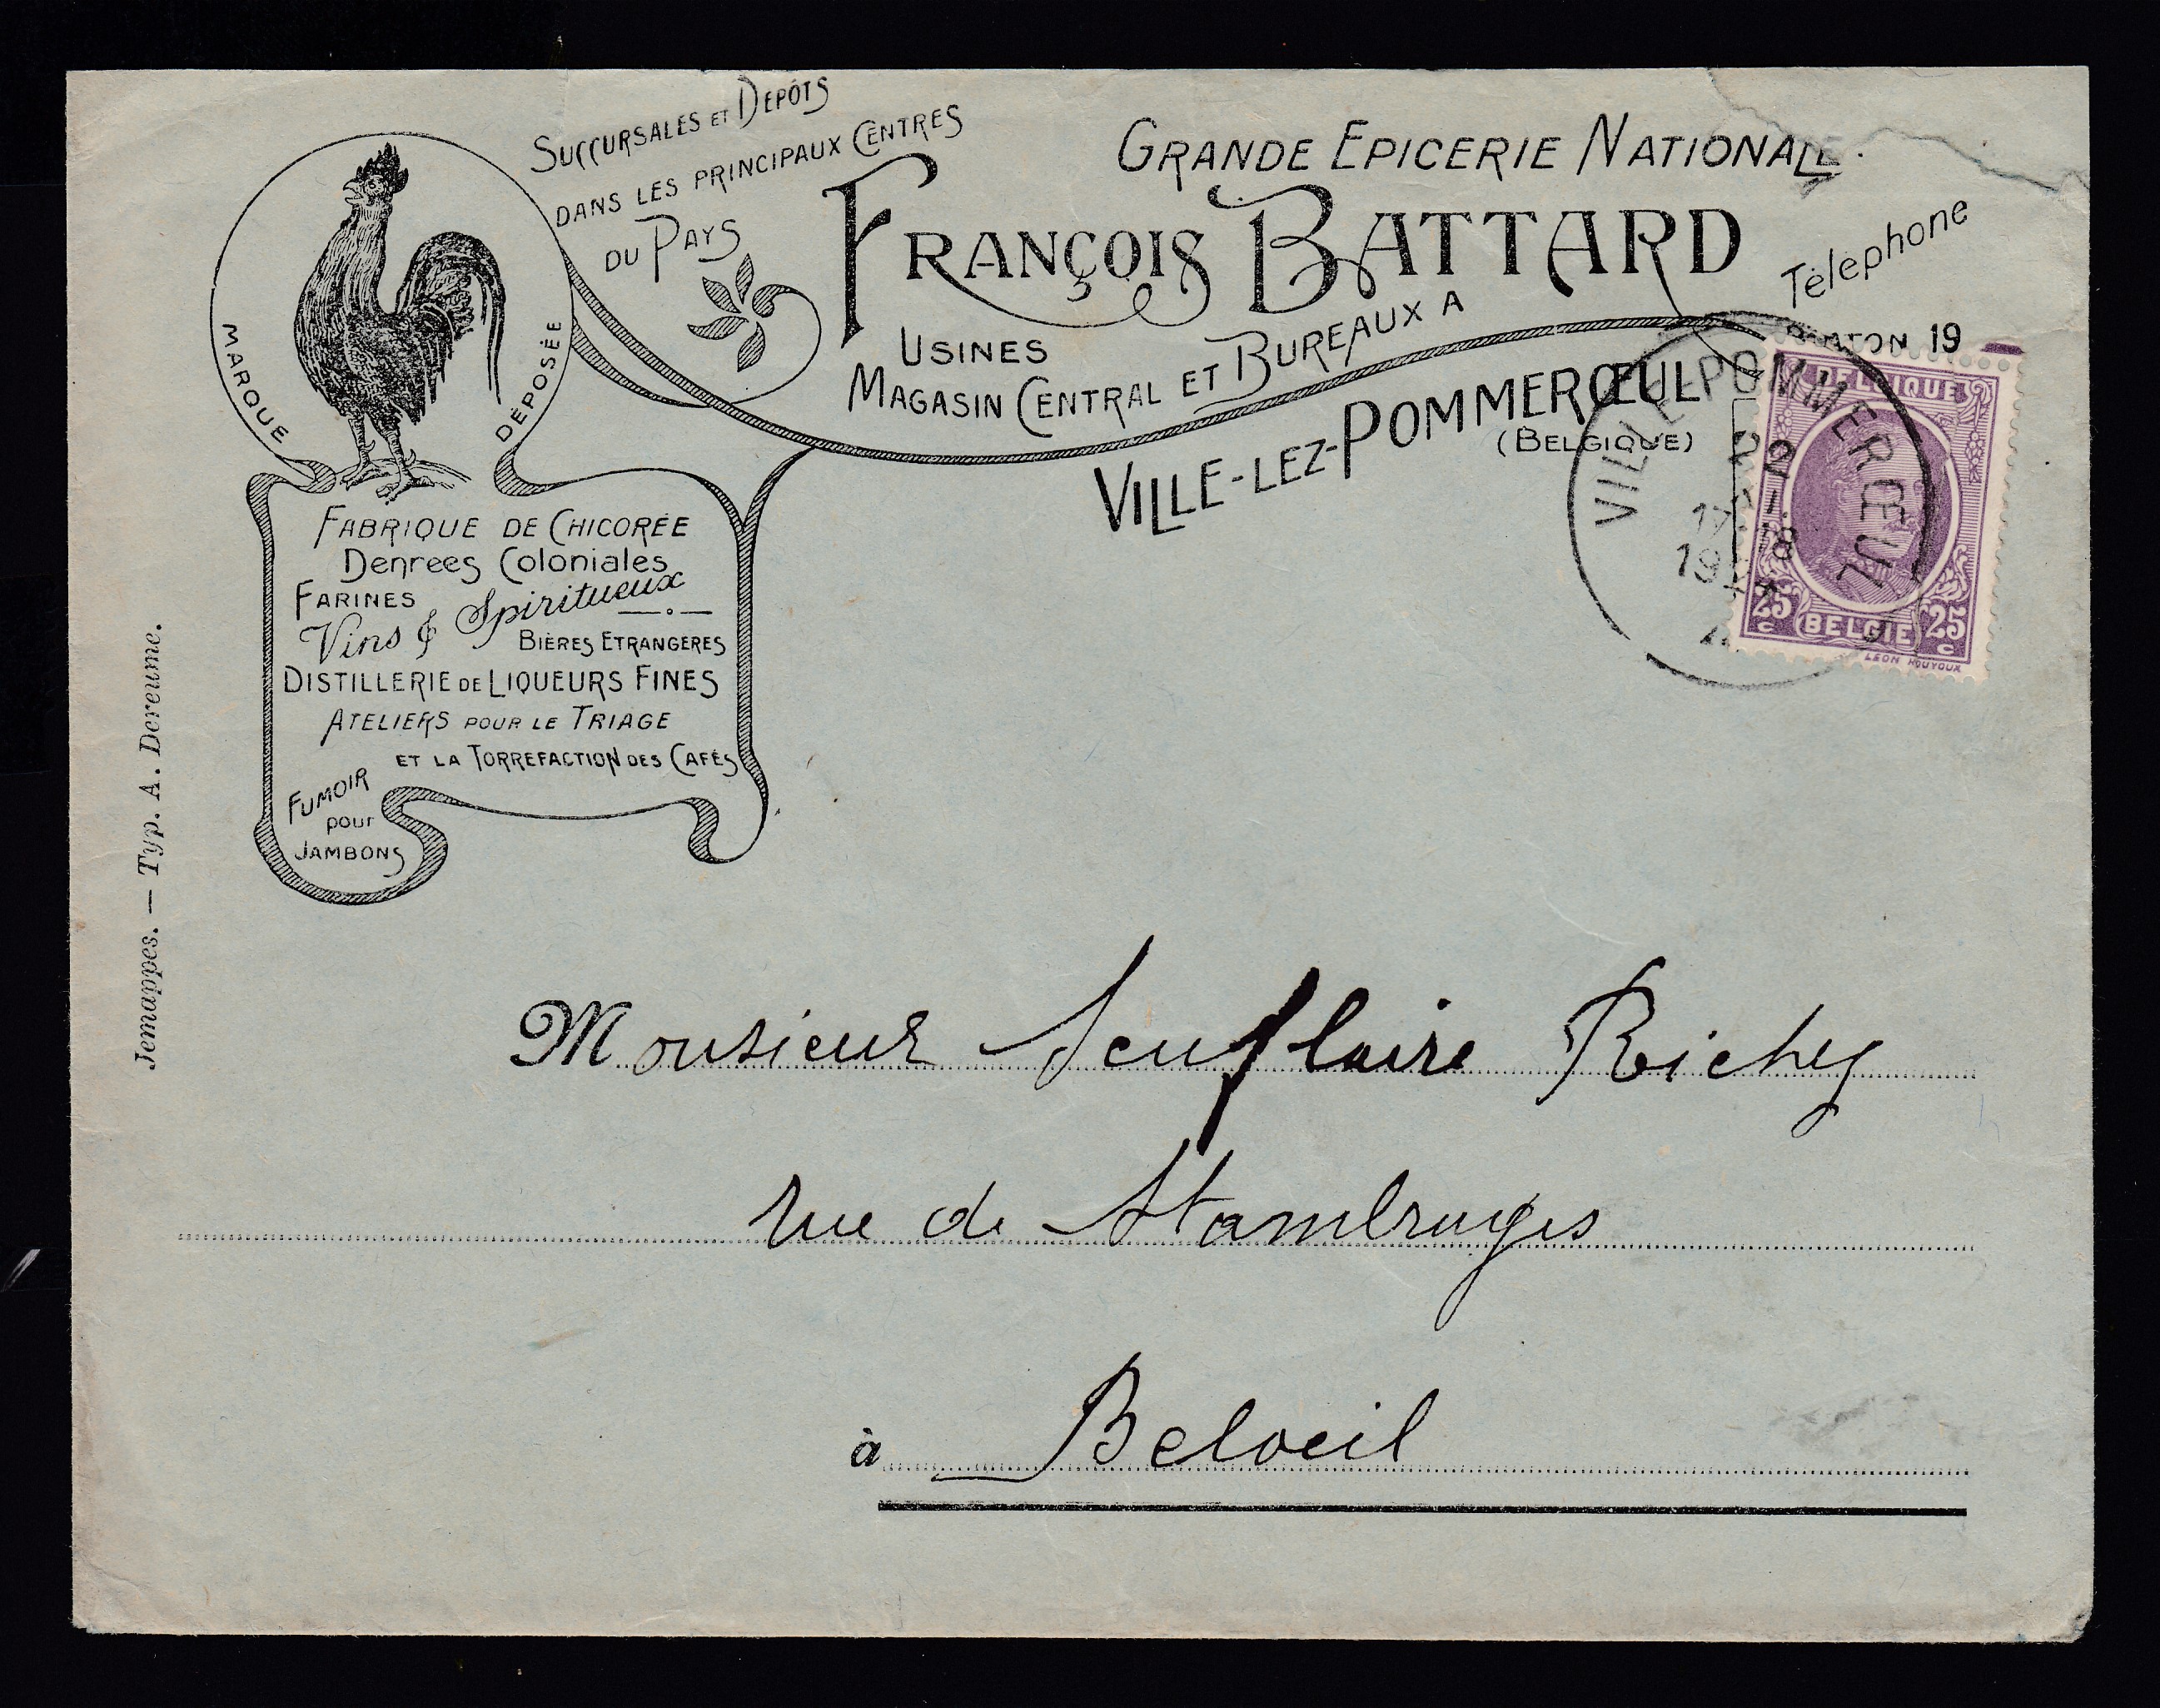 Succursales et Dépôts
dans les principaux Centres
du Pays
Grande Epicerie Nationale.
François Battard
Téléphone
19
Usines
Magasin Central et Bureaux a
Ville-lez-Pommerœul
(Belgique)
MARQUE DÉPOSÉE
Fabrique de Chicorée
Denrees Coloniales
Farines
Vins & Spiritueux
Bières Etrangeres
Distillerie de Liqueurs Fines
Ateliers pour le Triage
et la Torrefaction des Cafés
Fumoir
pour
Jambons
Jemappes. — Typ. A. Dereume.
POMMERŒUL
BELGIQUE
25 c BELGIE 25 c
LEON HOUYOUX
Monsieur Richy
rue de Stambruges
à Beloeil